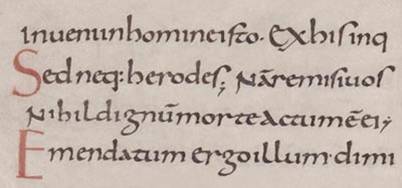 inuenı inhomineisto. Exhisinq
Sed neq: herodes; Nā remisi uos
Nihil dignū morte actum ē ei;
Emendatum ergo illum dimi